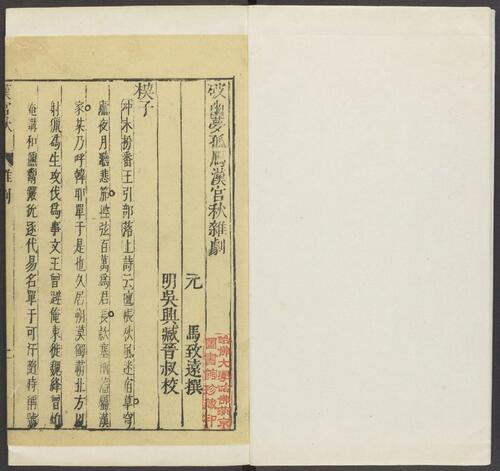 破幽夢孤鴈漢宮秋雜劇
元 馬致遠撰
明吳興臧晉叔校
楔子
冲末扮番王引部落上詩云氊帳秋風迷宿草穹
廬夜月聽悲笳控弦百萬爲君長欵塞稱藩屬漢
家某乃呼韓耶單于是也久居朔漠獨霸北方以
射獵爲生攻伐爲事文王曾避俺東徙魏絳曾怕
俺講和獯鬻玁狁逐代易名單于可汗隨時稱號
漢宮秋 雜劇 一
哈佛大學哈佛燕京
圖書館珍藏印